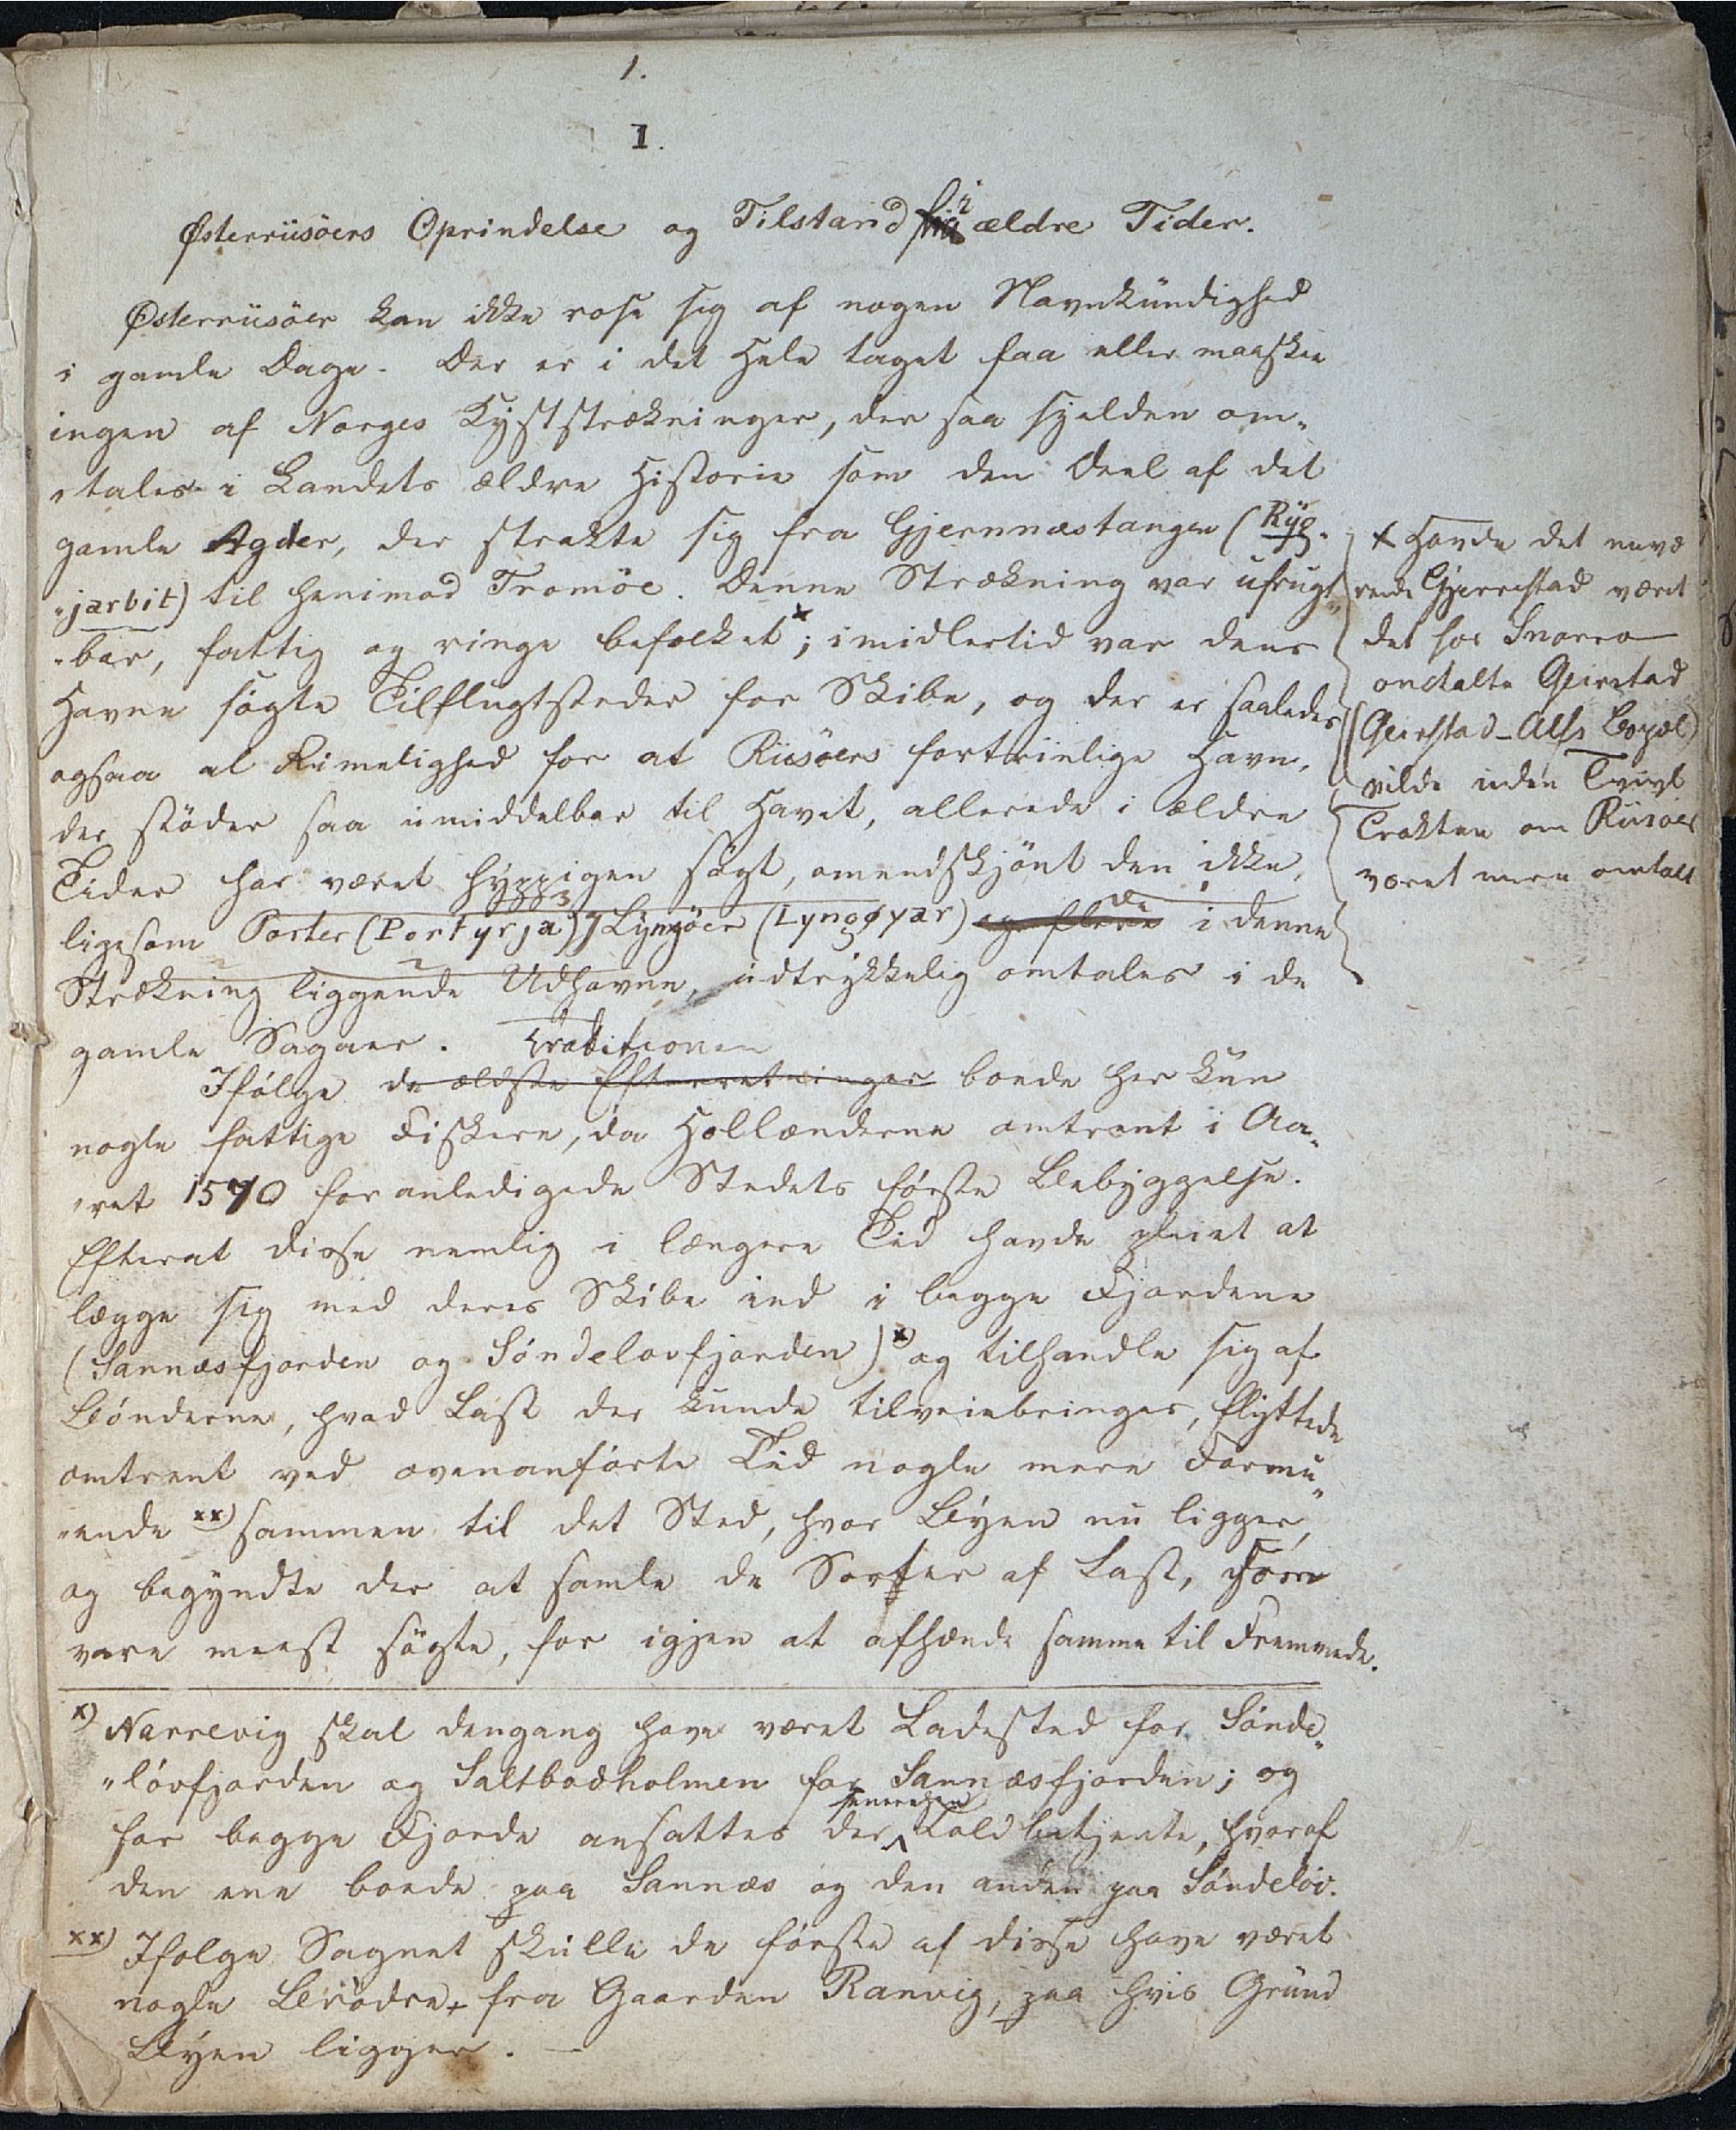 1.
I.
Østerriisöers Oprindelse og Tilstand i ældre Tider.
Østerriisöer kan ikke rose sig af nogen Navnkündighed
i gamle Dage. Der er i det Hele taget faa eller maaskee
ingen af Norges Kyststrækninger, der saa sjelden om„
„tales i Landets ældre Historie som den Deel af det
gamle Agder, der strakte sig fra Gjernnæstangen (Ryg„
„jarbit) til henimod Tromöe. Denne Strækning var ufrugt„
„bar, fattig og ringe befolket x; imidlertid var dens
Havne søgte Tilflugtsteder for Skibe, og der er saaledes
ogsaa al Rimelighed for at Riisöers fortrinlige Havn,
der stöder saa umiddelbar til Havet, allerede i ældre
Tider har været hyppigen søgt, omendskjönt den ikke,
ligesom Porter (Portyrja) Lyngöer (Lyngøyar) og flere de i denne
Strækning liggende Udhavne, udtrykkelig omtales i de
gamle Sagaer. Traditionen
Ifølge de ældste Efterretninger boede her kun
nogle fattige Fiskere, da Hollænderne omtrent i Aa„
„ret 1570 foranledigede Stedets første Bebyggelse.
Efterat disse nemlig i længere Tid havde pleiet at
lægge sig med deres Skibe ind i begge Fjordene
(Sannæsfjorden og Söndelovfjorden) x) og tilhandle sig af
Bönderne, hvad Last der kunde tilveiebringes, flyttede
omtrent ved ovenanførte Tid nogle mere Formu„
„ende xx) sammen til det Sted, hvor Byen nu ligger,
og begyndte der at samle de Sorter af Last, som
vare meest søgte, for igjen at afhænde samme til Fremmede.
x) Narrevig skal dengang have været Ladested for Sönde„
„lövfjorden og Saltbodholmen for Sannæsfjorden; og
for begge Fjorde ansattes der senerehen Toldbetjente, hvoraf
den ene boede paa Sannæs og den anden paa Söndelöv.
xx) Ifølge Sagnet skulle de første af disse have været
nogle Brödre fra Gaarden Ranvig, paa hvis Grund
Byen ligger. —
x Havde det nuvæ
rende Gjerrestad været
det hos Snorro
omtalte Geirstad
(Geirstad-Alfs Bopæl)
vilde uden Tvivl
Trakten om Riisöer
været mere omtalt